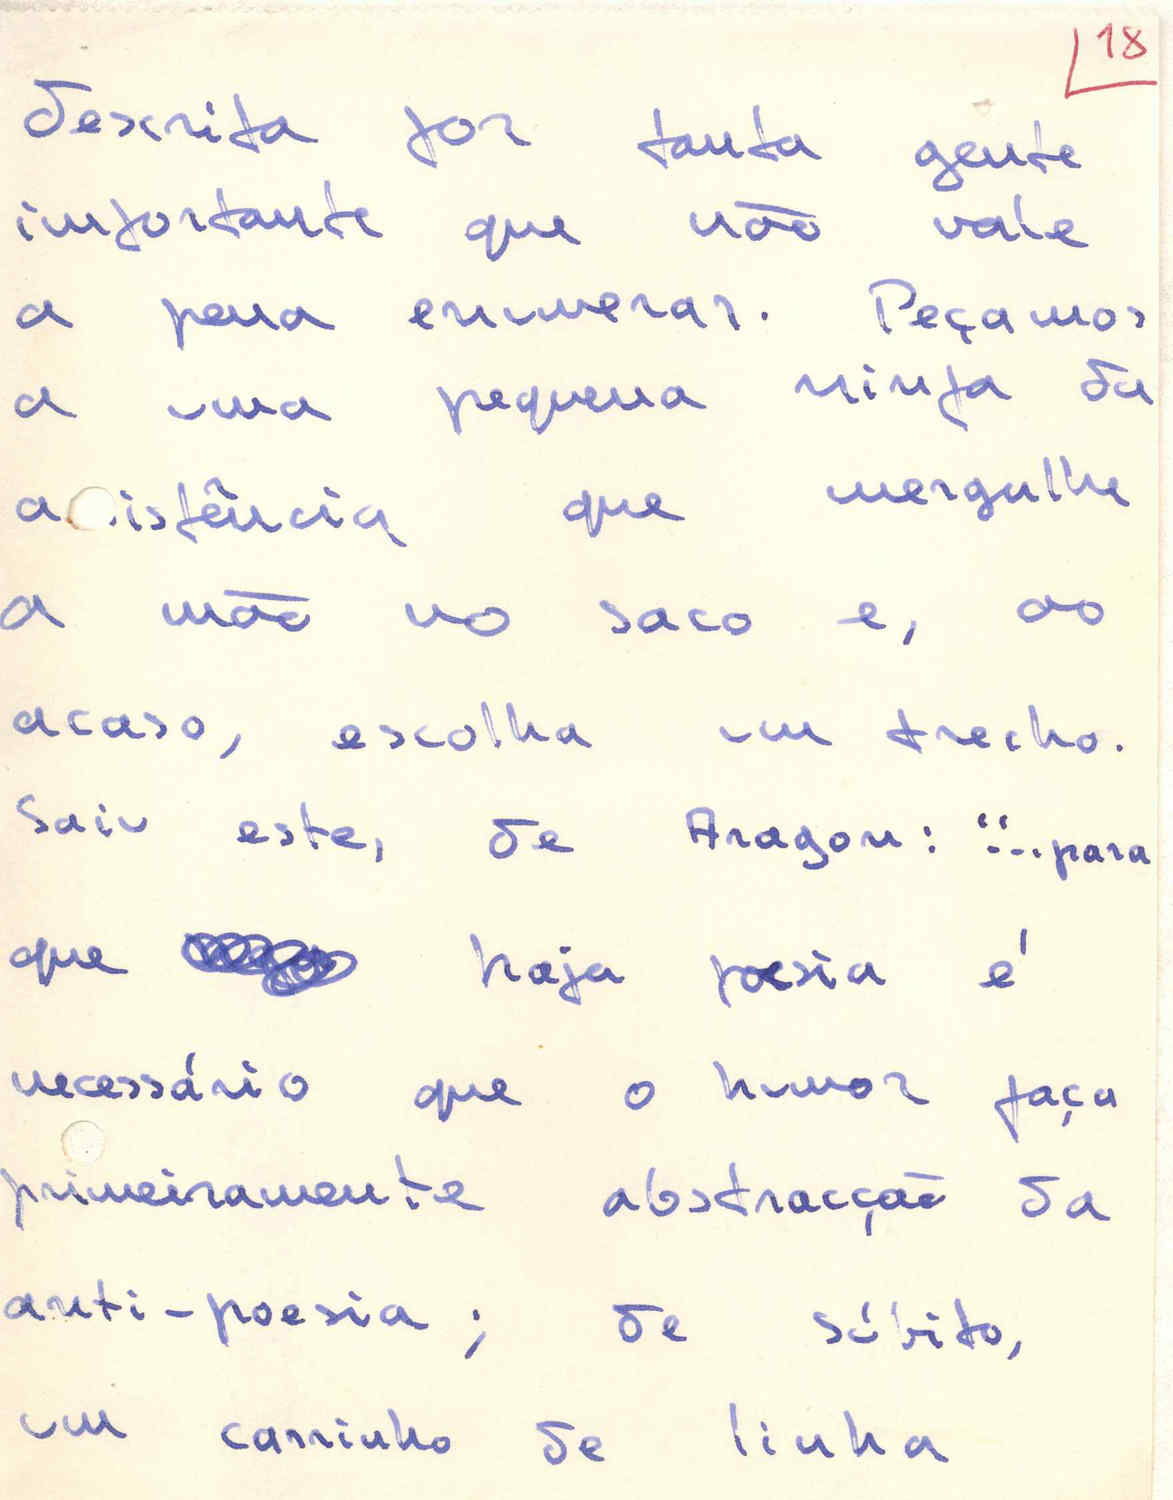 18
descrita por tanta gente
importante que não vale
a pena enumerar. Peçamos
a uma pequena ninfa da
a istência que mergulhe
a mão no saco e, ao
acaso, escolha um trecho.
Saiu este, de Aragon: "...para
que haja poesia é
necessário que o humor faça
primeiramente abstracção da
anti-poesia; de súbito,
um carrinho de linha